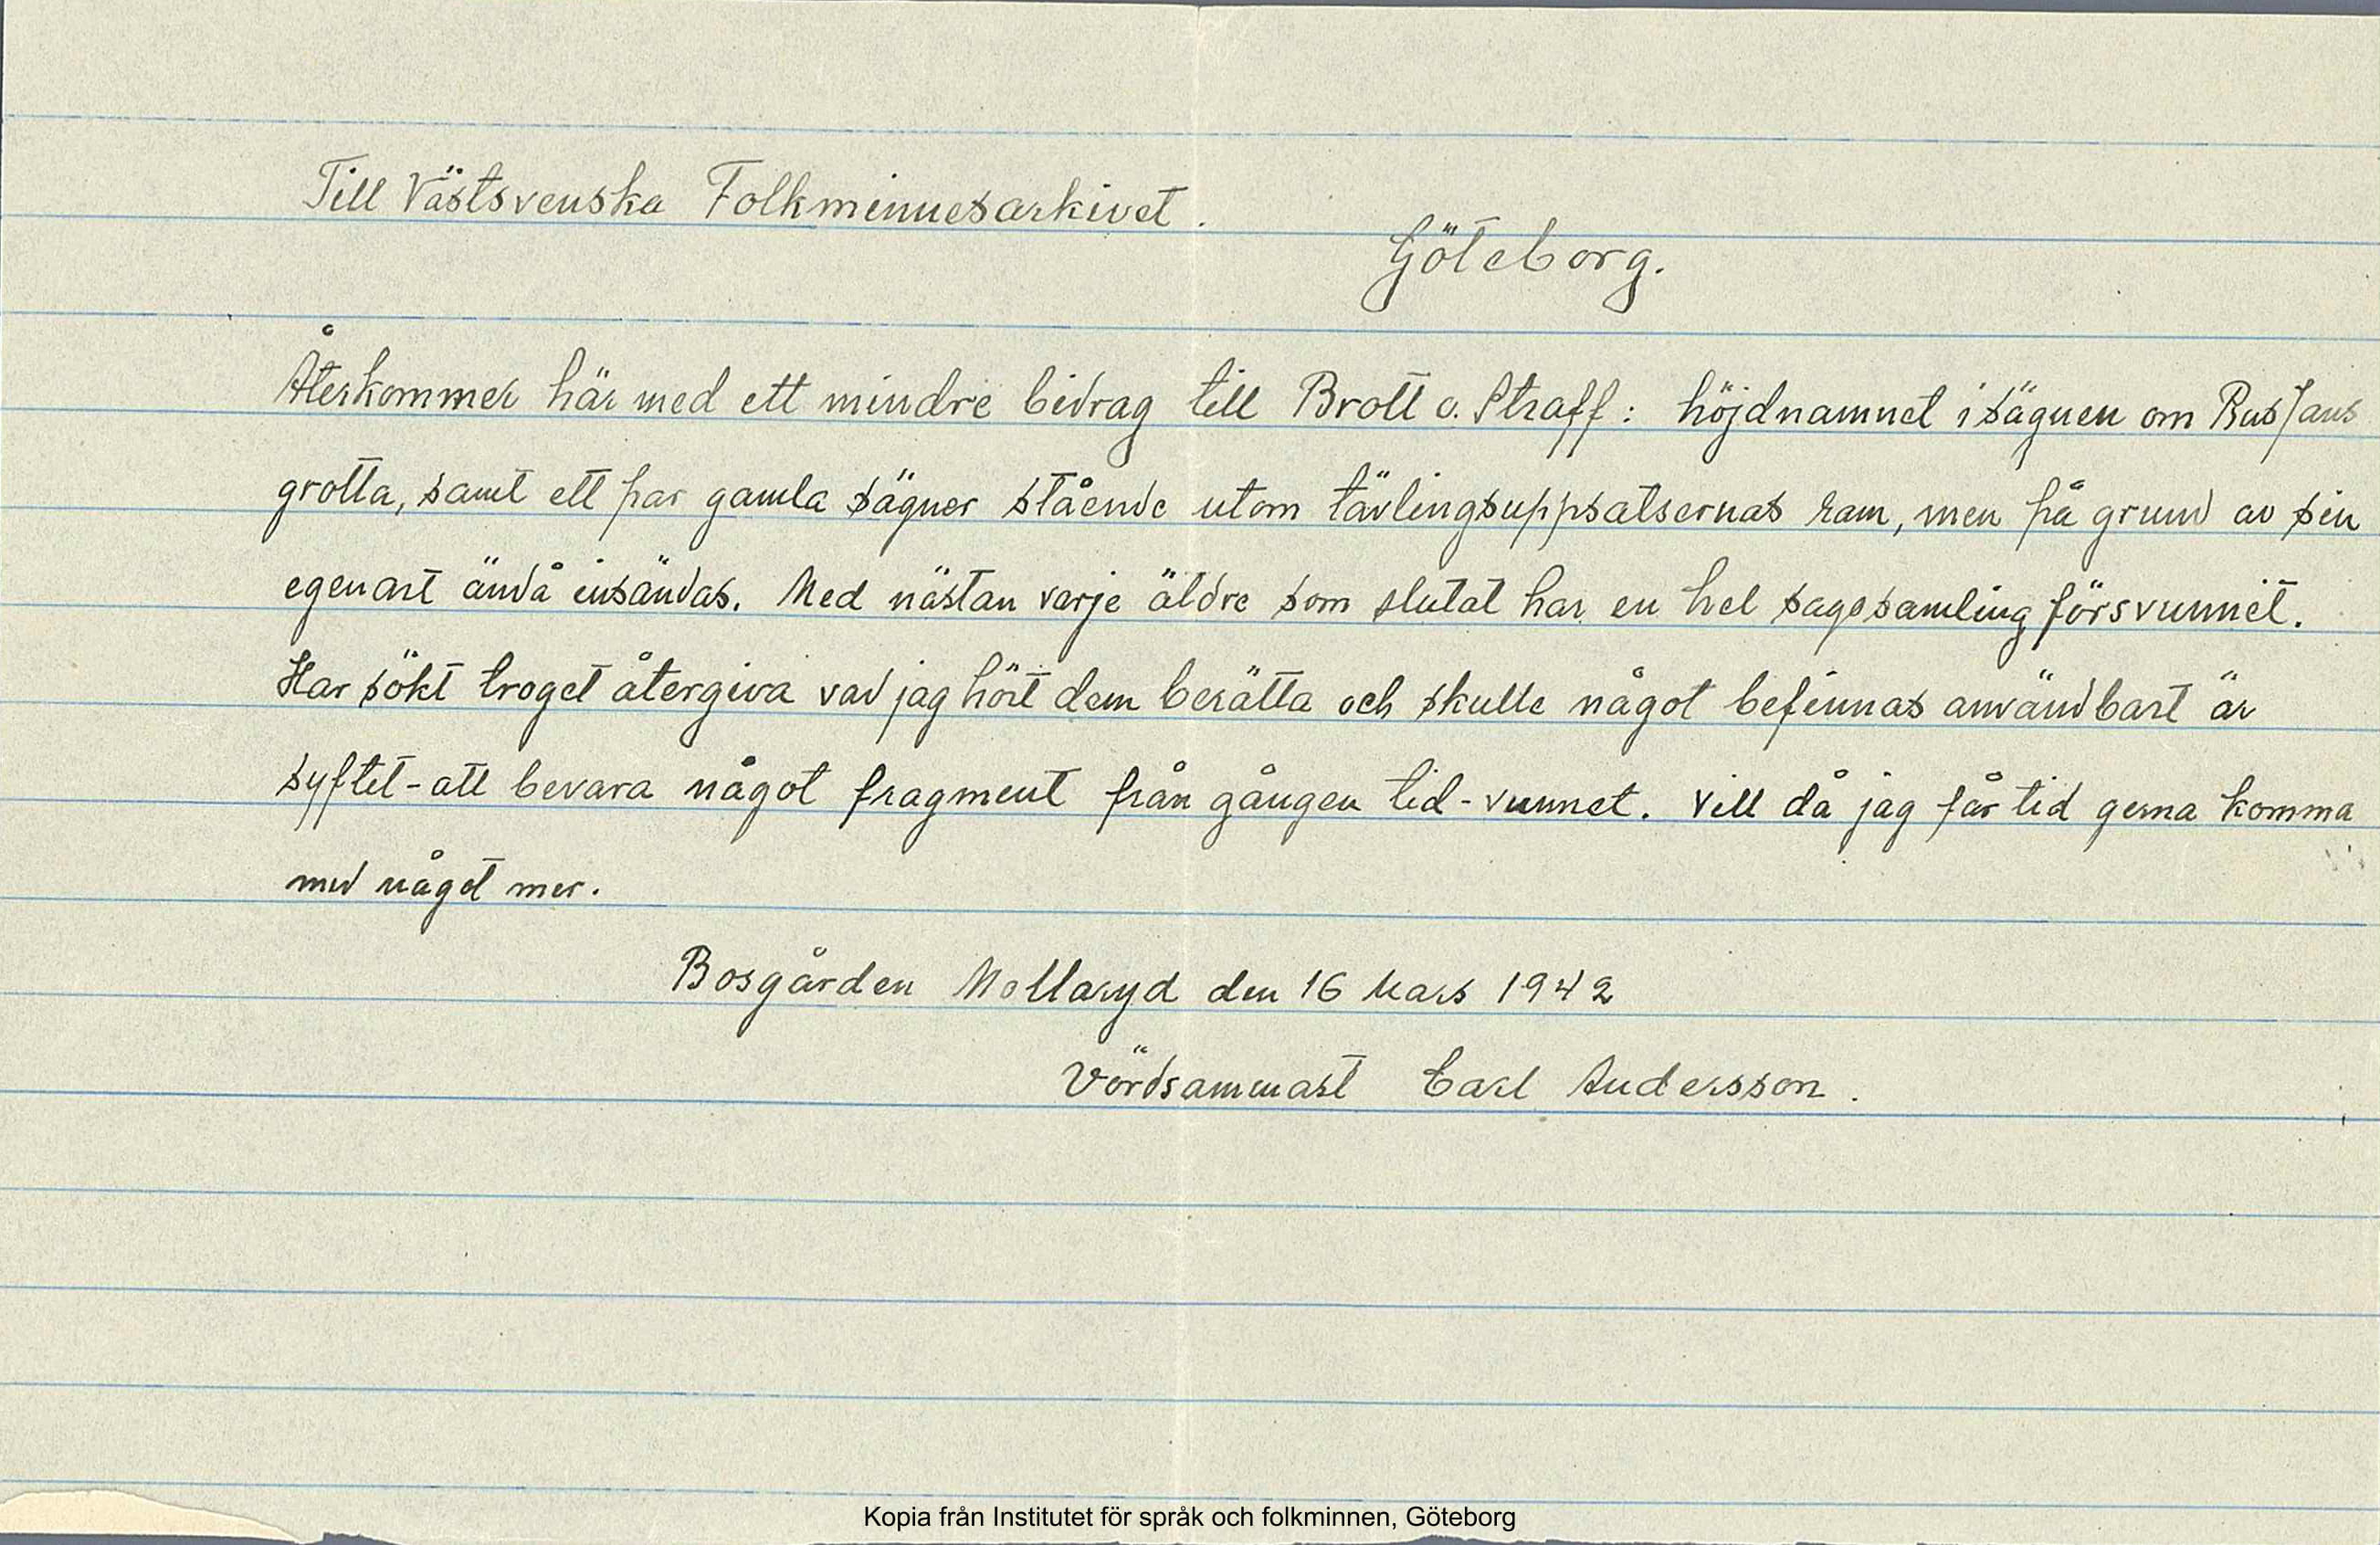 Till Västsvenska Folkminnesarkivet.
Göteborg.
Återkommer här med ett mindre bidrag till Brott o. Straff: höjdnamnet i sägnen om Bus Jans
grotta, samt ett par gamla sägner stående utom tävlingsuppsatsernas ram, men på grund av sin
egenart ändå insändas. Med nästan varje äldre som slutat har en hel sagosamling försvunnit.
Har sökt troget återgiva vad jag hört dem berätta och skulle något befinnas användbart är
syftet - att bevara något fragment från gången tid - vunnet. Vill då jag får tid gerna komma
med något mer.
Bosgården Mollaryd den 16 Mars 1942
Vördsammast Carl Andersson.
Kopia från Institutet för språk och folkminnen, Göteborg